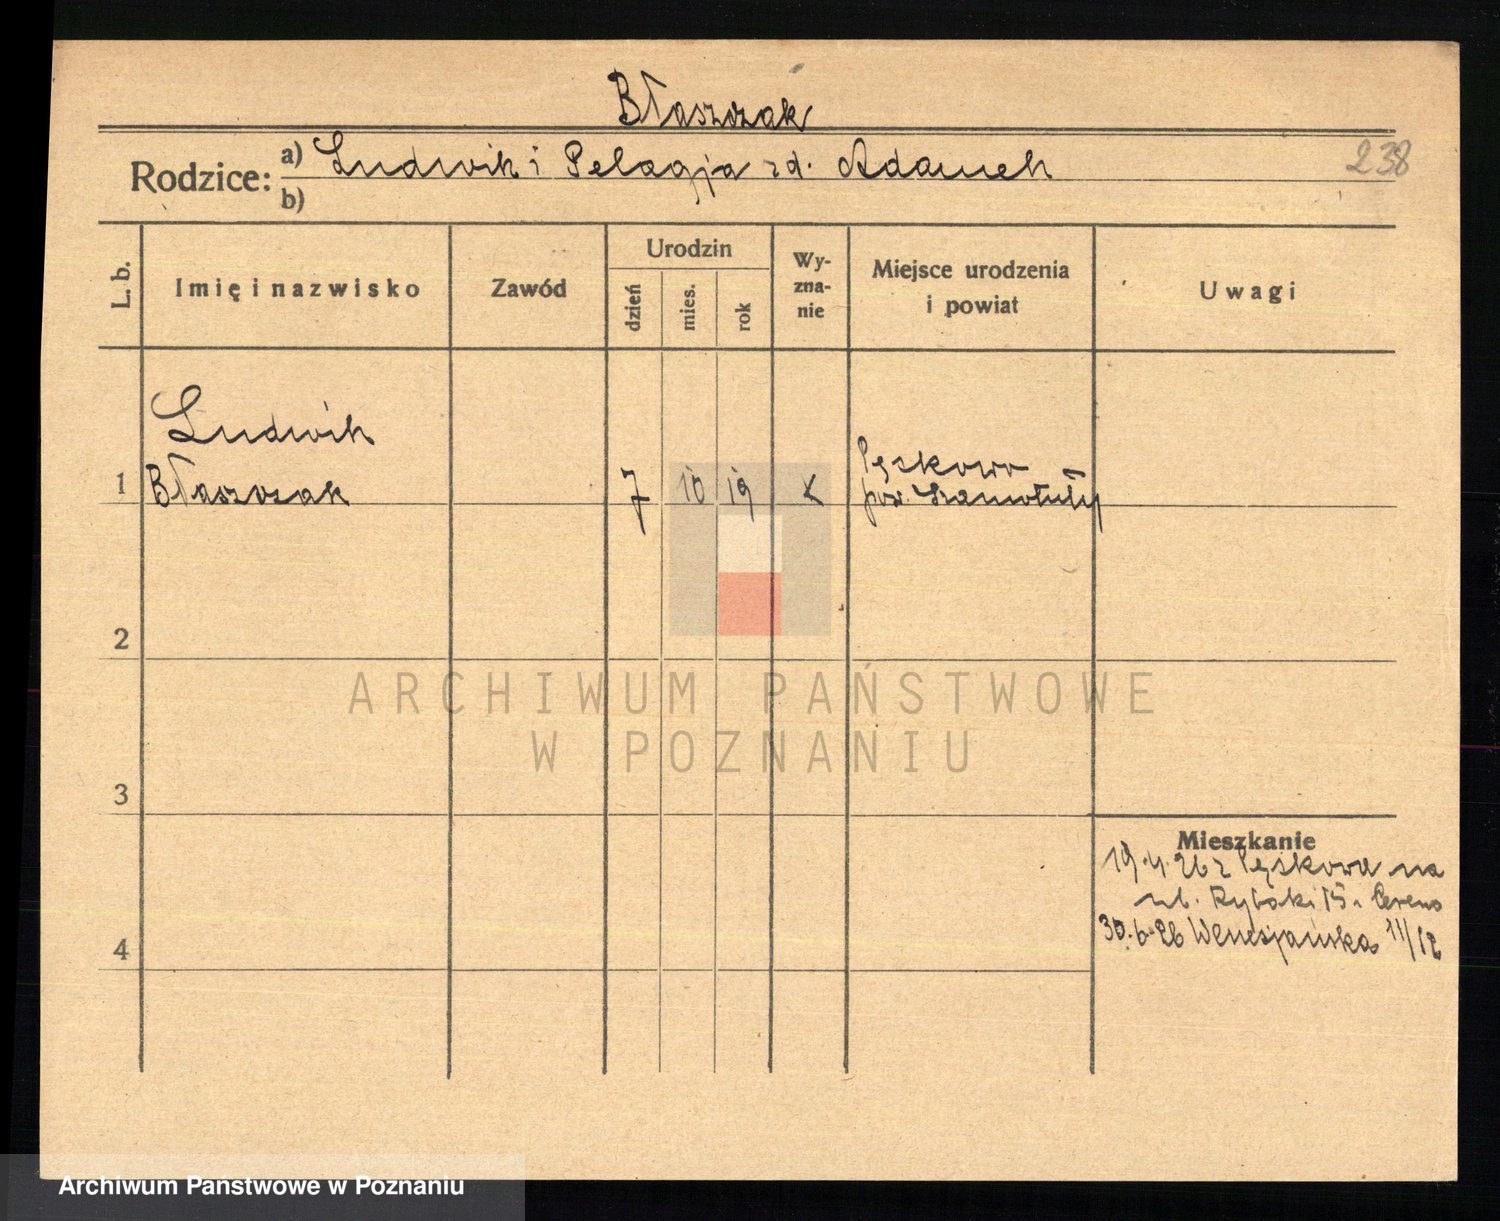 Błaszczak
Rodzice: a) Ludwik i Pelagja zd. Adamek
238
b)
L. b.
Imię i nazwisko
Zawód
Urodzin
dzień
mies.
rok
Wy-
zna-
nie
Miejsce urodzenia
i powiat
Uwagi
Ludwik
1 Błaszczak 7 10 19 K
Pęskowo
pow. Szamotuły
2
3
4
ARCHIWUM PAŃSTWOWE
W POZNANIU
Mieszkanie
19.4.26 z Pęskowa na
ul. Rybaki 15
30.6.26 Wenecjańska 11/12
Archiwum Państwowe w Poznaniu